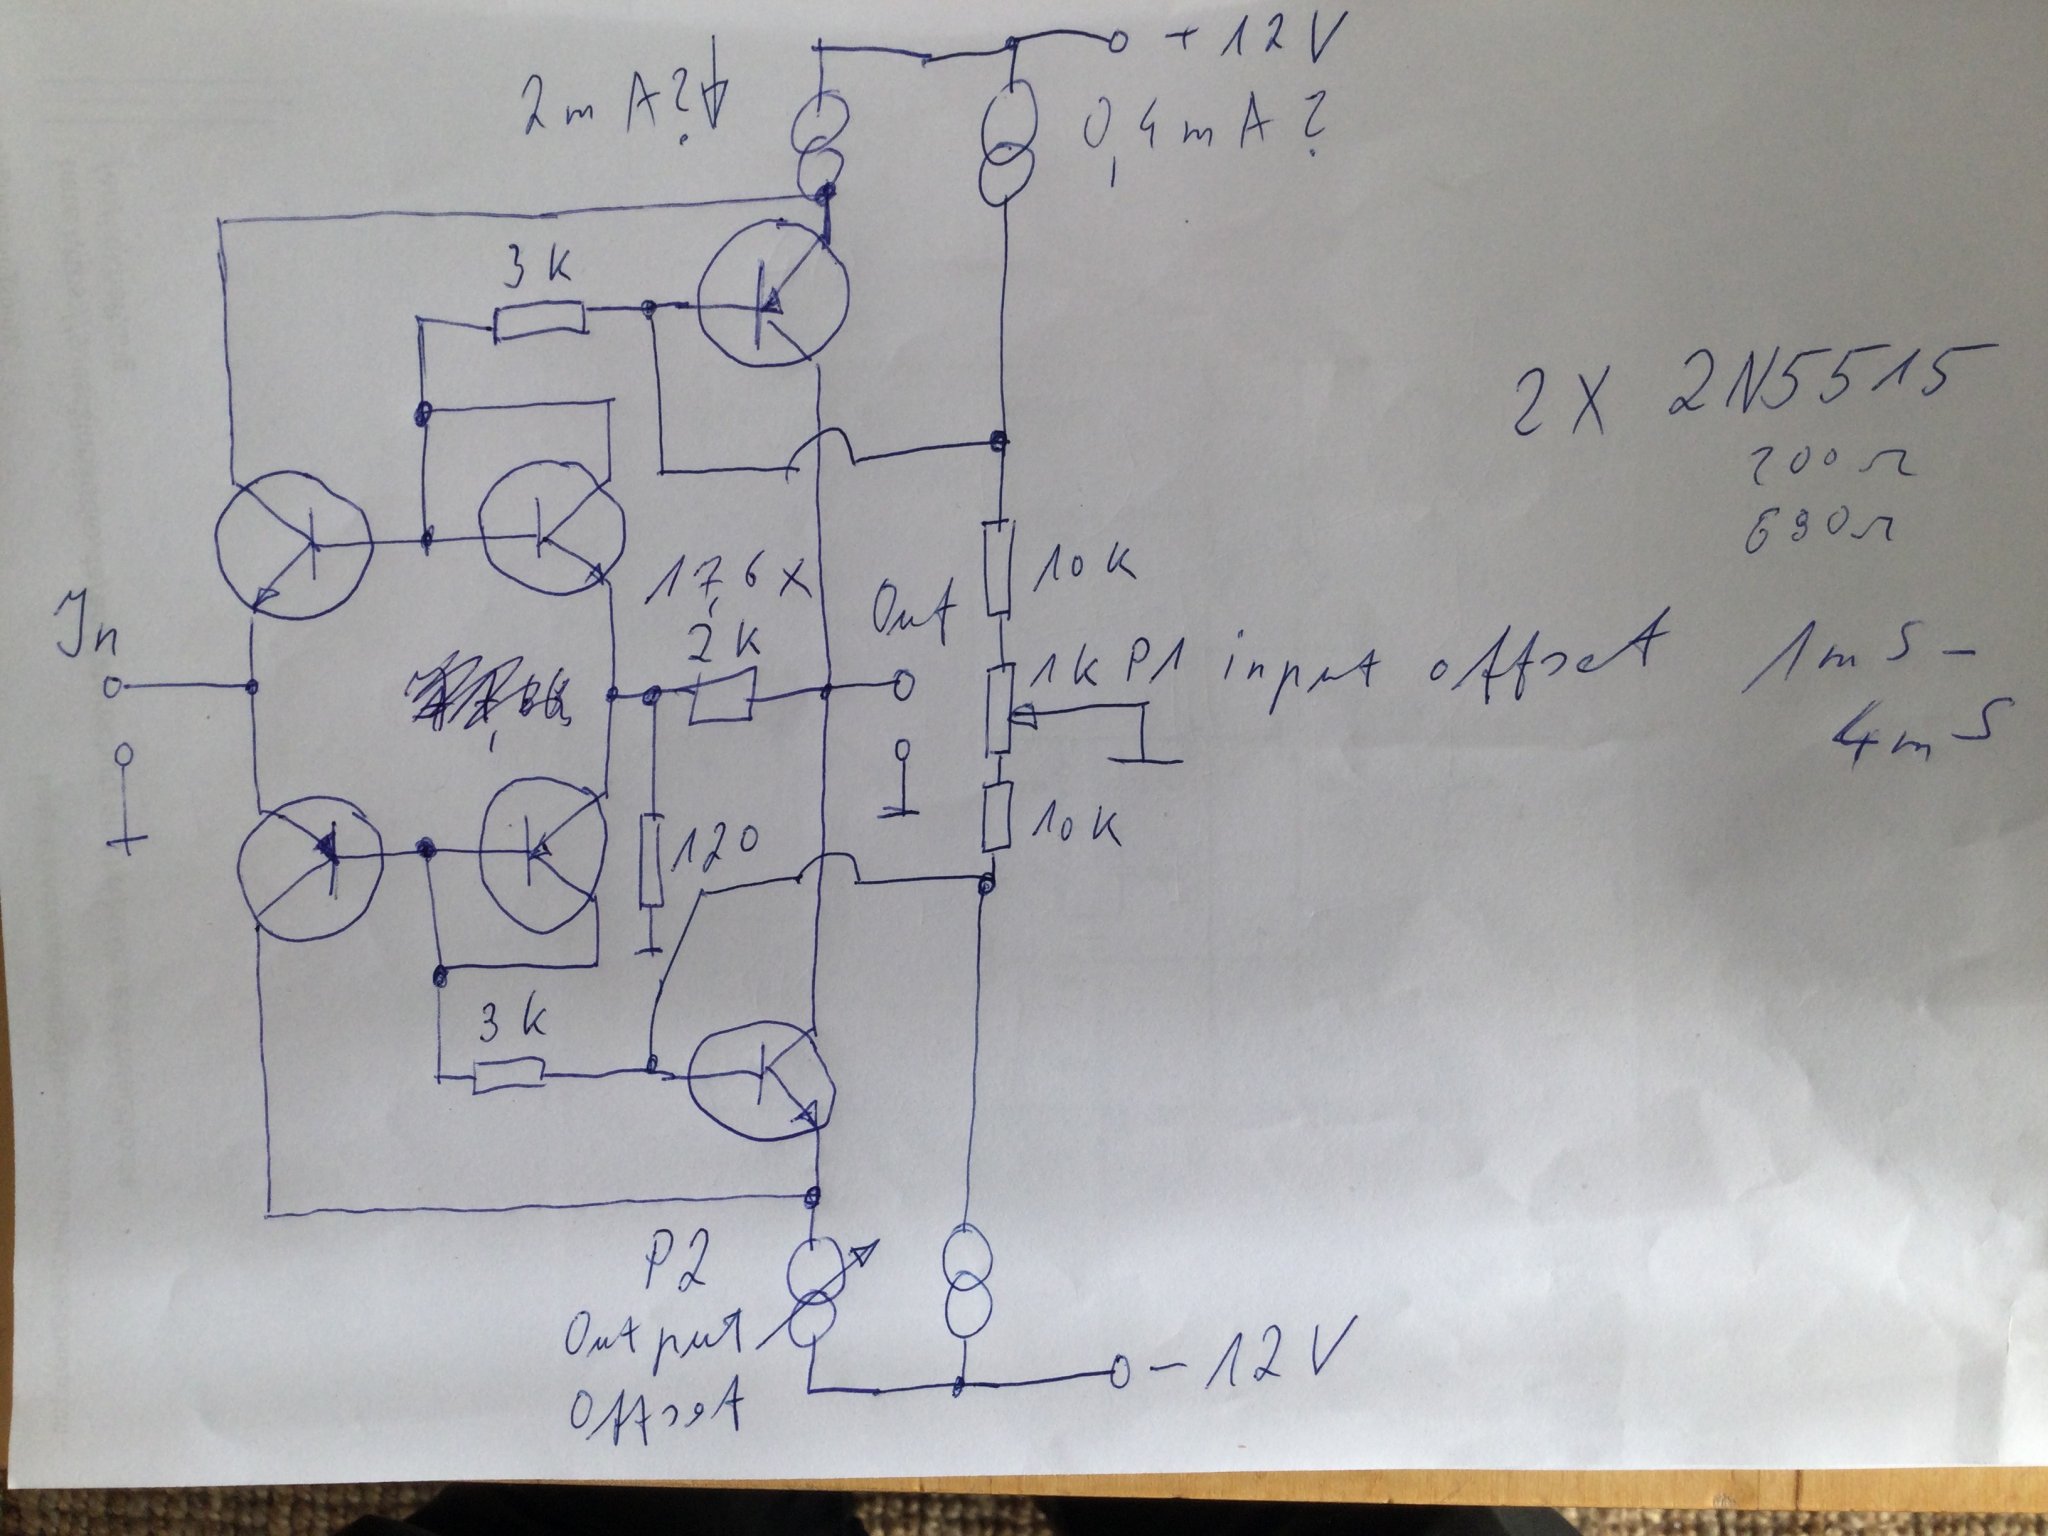 +12V
2mA?
0,4mA?
3K
2X 2N5515
200Ω
690Ω
17,6X
10K
In
2K
Out
1K P1 input offset
1mS-
4mS
120
10K
3K
P2
Output
Offset
-12V